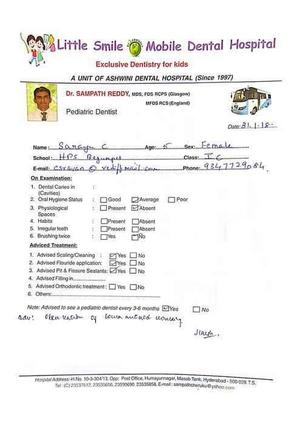 Little Smile Mobile Dental Hospital
Exclusive Dentistry for kids
A UNIT OF ASHWINI DENTAL HOSPITAL (Since 1997)
Dr. SAMPATH REDDY, MDS, FDS RCPS (Glasgow)
MFDS RCS (England)
Pediatric Dentist
Date: 31.1.18
Name: Sarayu C Age: 5 Sex: Female
School: HPS Begumpet Class: I C
E-mail: csravan@rediffmail.com Phone: 9347729084
On Examination:
1. Dental Caries in :
(Cavities)
2. Oral Hygiene Status : Good Average Poor
3. Physiological : Present Absent
Spaces
4. Habits : Present Absent
5. Irregular teeth : Present Absent
6. Brushing twice : Yes No
Adviced Treatment:
1. Advised Scaling/Cleaning : Yes No
2. Advised Flouride application: Yes No
3. Advised Pit & Fissure Sealants: Yes No
4. Advised Filling in
5. Advised Orthodontic treatment : Yes No
6. Others:
Note: Advised to see a pediatric dentist every 3-6 months Yes No
Adv: Observation of lower
Hospital Address: H.No. 10-3-304/13, Opp: Post Office, Humayunnagar, Masab Tank, Hyderabad - 500 028. T.S.
Tel: (C) 23537612, 23535650, 23590690, 23535858, E-mail: sampathcheruku@yahoo.com